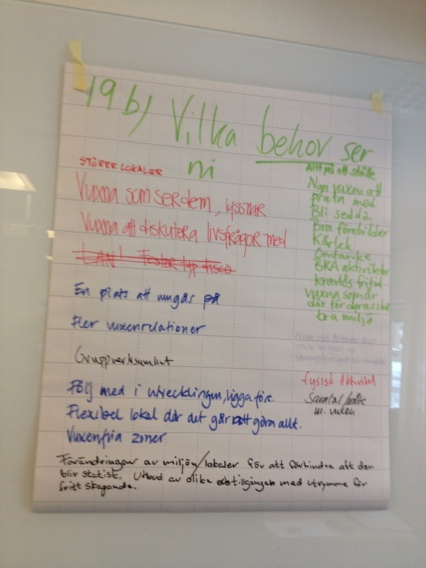 19 b) Vilka behov ser
ni
STÖRRE LOKALER
Vuxna som ser dem, lyssnar
Vuxna att diskutera livsfrågor med
LAN!
En plats att umgås på
Fler vuxenrelationer
Gruppverksamhet
Följ med i utvecklingen, ligga före.
Flexibel lokal där det går att göra allt.
Vuxenfria zoner
Förändringar av miljön/lokaler för att förhindra att den
blir statisk. Utbud av olika med utrymme för
fritt skapande.
Allt på ett ställe
vuxen att
prata med
Bli sedda
Bra förebilder
Kärlek
Omtanke
BRA aktiviteter
kravlös fritid
vuxna som är
där för deras skull
bra miljö
Fysisk Aktivitet
Samtal
m. vuxen